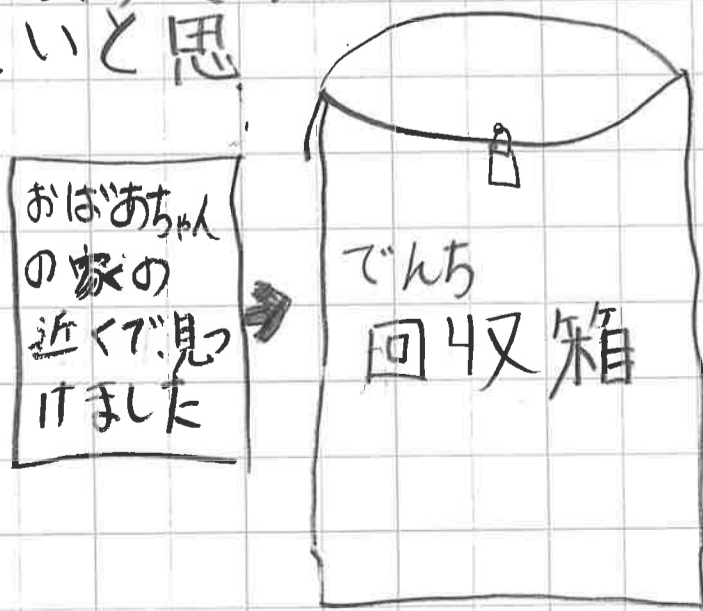 いと思
おばあちゃん
の家の
近くで見つ
けました
でんち
回収箱